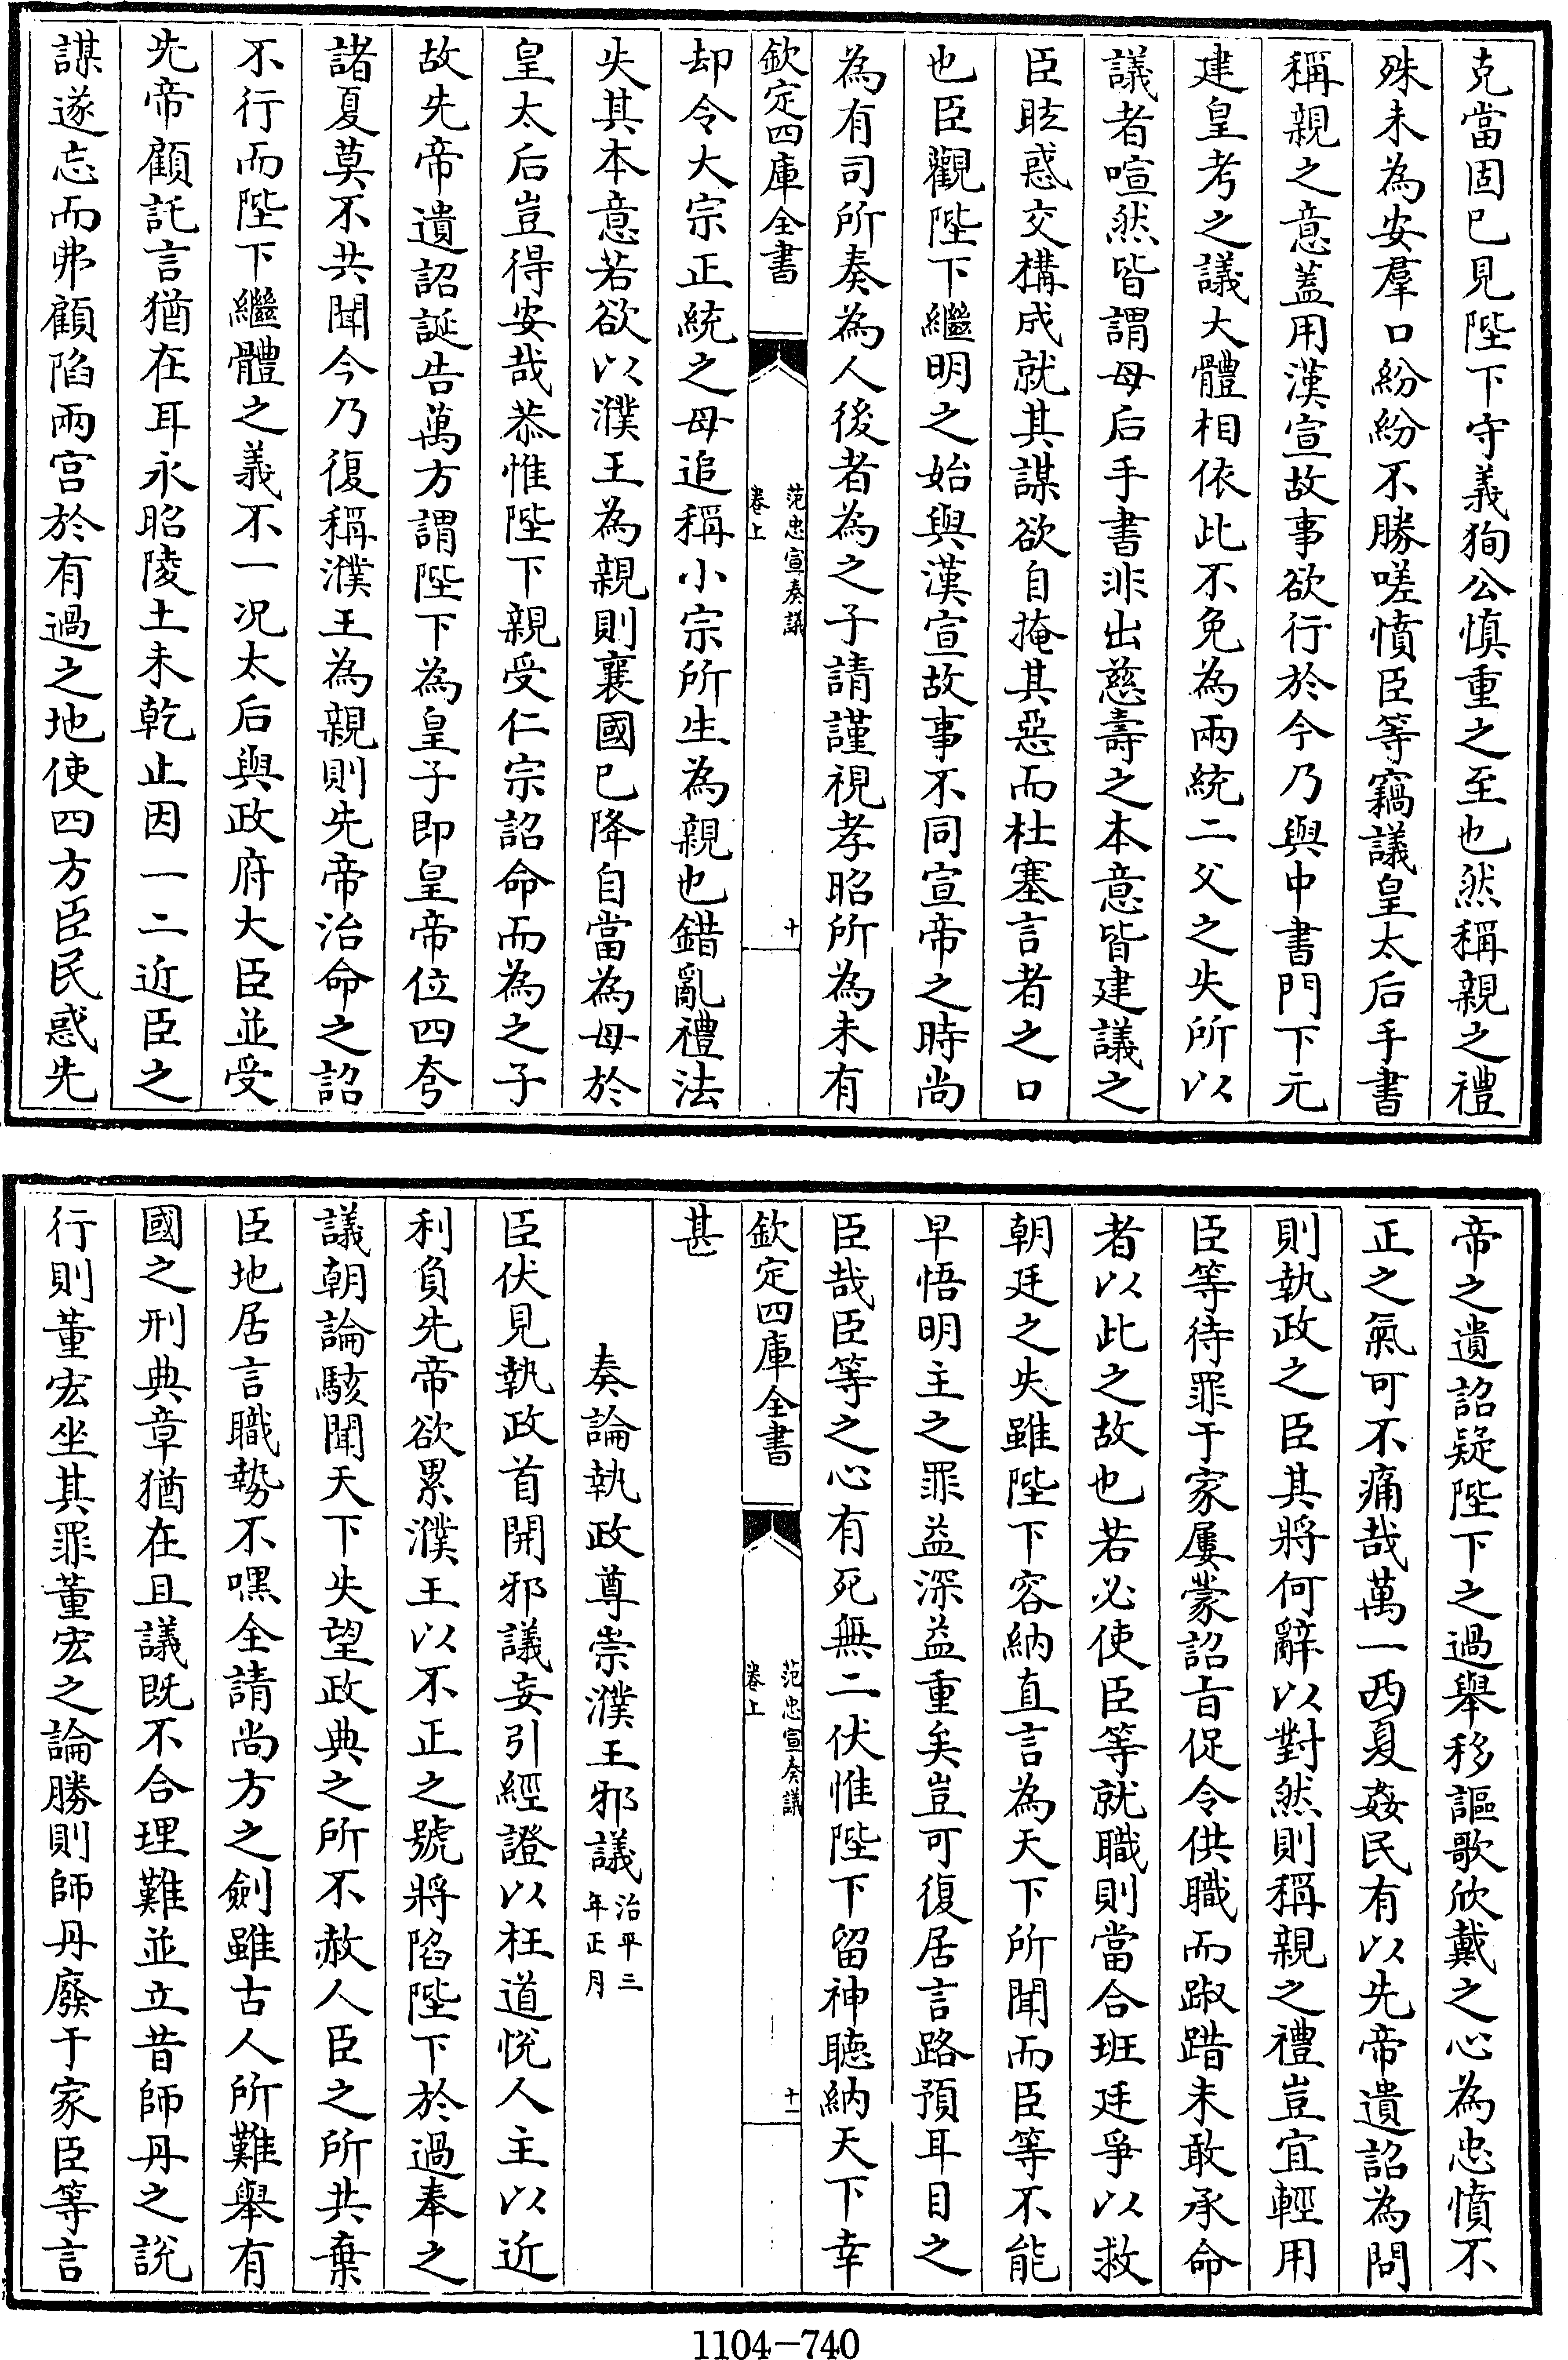 克當固已見陛下守義狥公慎重之至也然稱親之禮
殊未為安羣口紛紛不勝嗟憤臣等竊議皇太后手書
稱親之意蓋用漢宣故事欲行於今乃與中書門下元
建皇考之議大體相依此不免為兩統二父之失所以
議者喧然皆謂母后手書非出慈壽之本意皆建議之
臣眩惑交構成就其謀欲自掩其惡而杜塞言者之口
也臣觀陛下繼明之始與漢宣故事不同宣帝之時尚
為有司所奏為人後者為之子請謹視孝昭所為未有
欽定四庫全書
范忠宣奏議
卷上
十
却令大宗正統之母追稱小宗所生為親也錯亂禮法
失其本意若欲以濮王為親則襄國已降自當為母於
皇太后豈得安哉恭惟陛下親受仁宗詔命而為之子
故先帝遺詔誕告萬方謂陛下為皇子即皇帝位四夸
諸夏莫不共聞今乃復稱濮王為親則先帝治命之詔
不行而陛下繼體之義不一况太后與政府大臣並受
先帝顧託言猶在耳永昭陵土未乾止因一二近臣之
謀遂忘而弗顧陷兩宫於有過之地使四方臣民惑先
帝之遺詔疑陛下之過舉移謳歌欣戴之心為忠憤不
正之氣可不痛哉萬一西夏姦民有以先帝遺詔為問
則執政之臣其將何辭以對然則稱親之禮豈宜輕用
臣等待罪于家屢蒙詔旨促令供職而踧踖未敢承命
者以此之故也若必使臣等就職則當合班廷爭以救
朝廷之失雖陛下容納直言為天下所聞而臣等不能
早悟明主之罪益深益重矣豈可復居言路預耳目之
臣哉臣等之心有死無二伏惟陛下留神聽納天下幸
欽定四庫全書
范忠宣奏議
卷上
十一
甚
奏論執政尊崇濮王邪議治平三年正月
臣伏見執政首開邪議妄引經證以枉道恱人主以近
利負先帝欲累濮王以不正之號將陷陛下於過奉之
議朝論駭聞天下失望政典之所不赦人臣之所共棄
臣地居言職勢不嘿全請尚方之劍雖古人所難舉有
國之刑典章猶在且議既不合理難並立昔師丹之說
行則董宏坐其罪董宏之論勝則師丹廢于家臣等言
1104-740